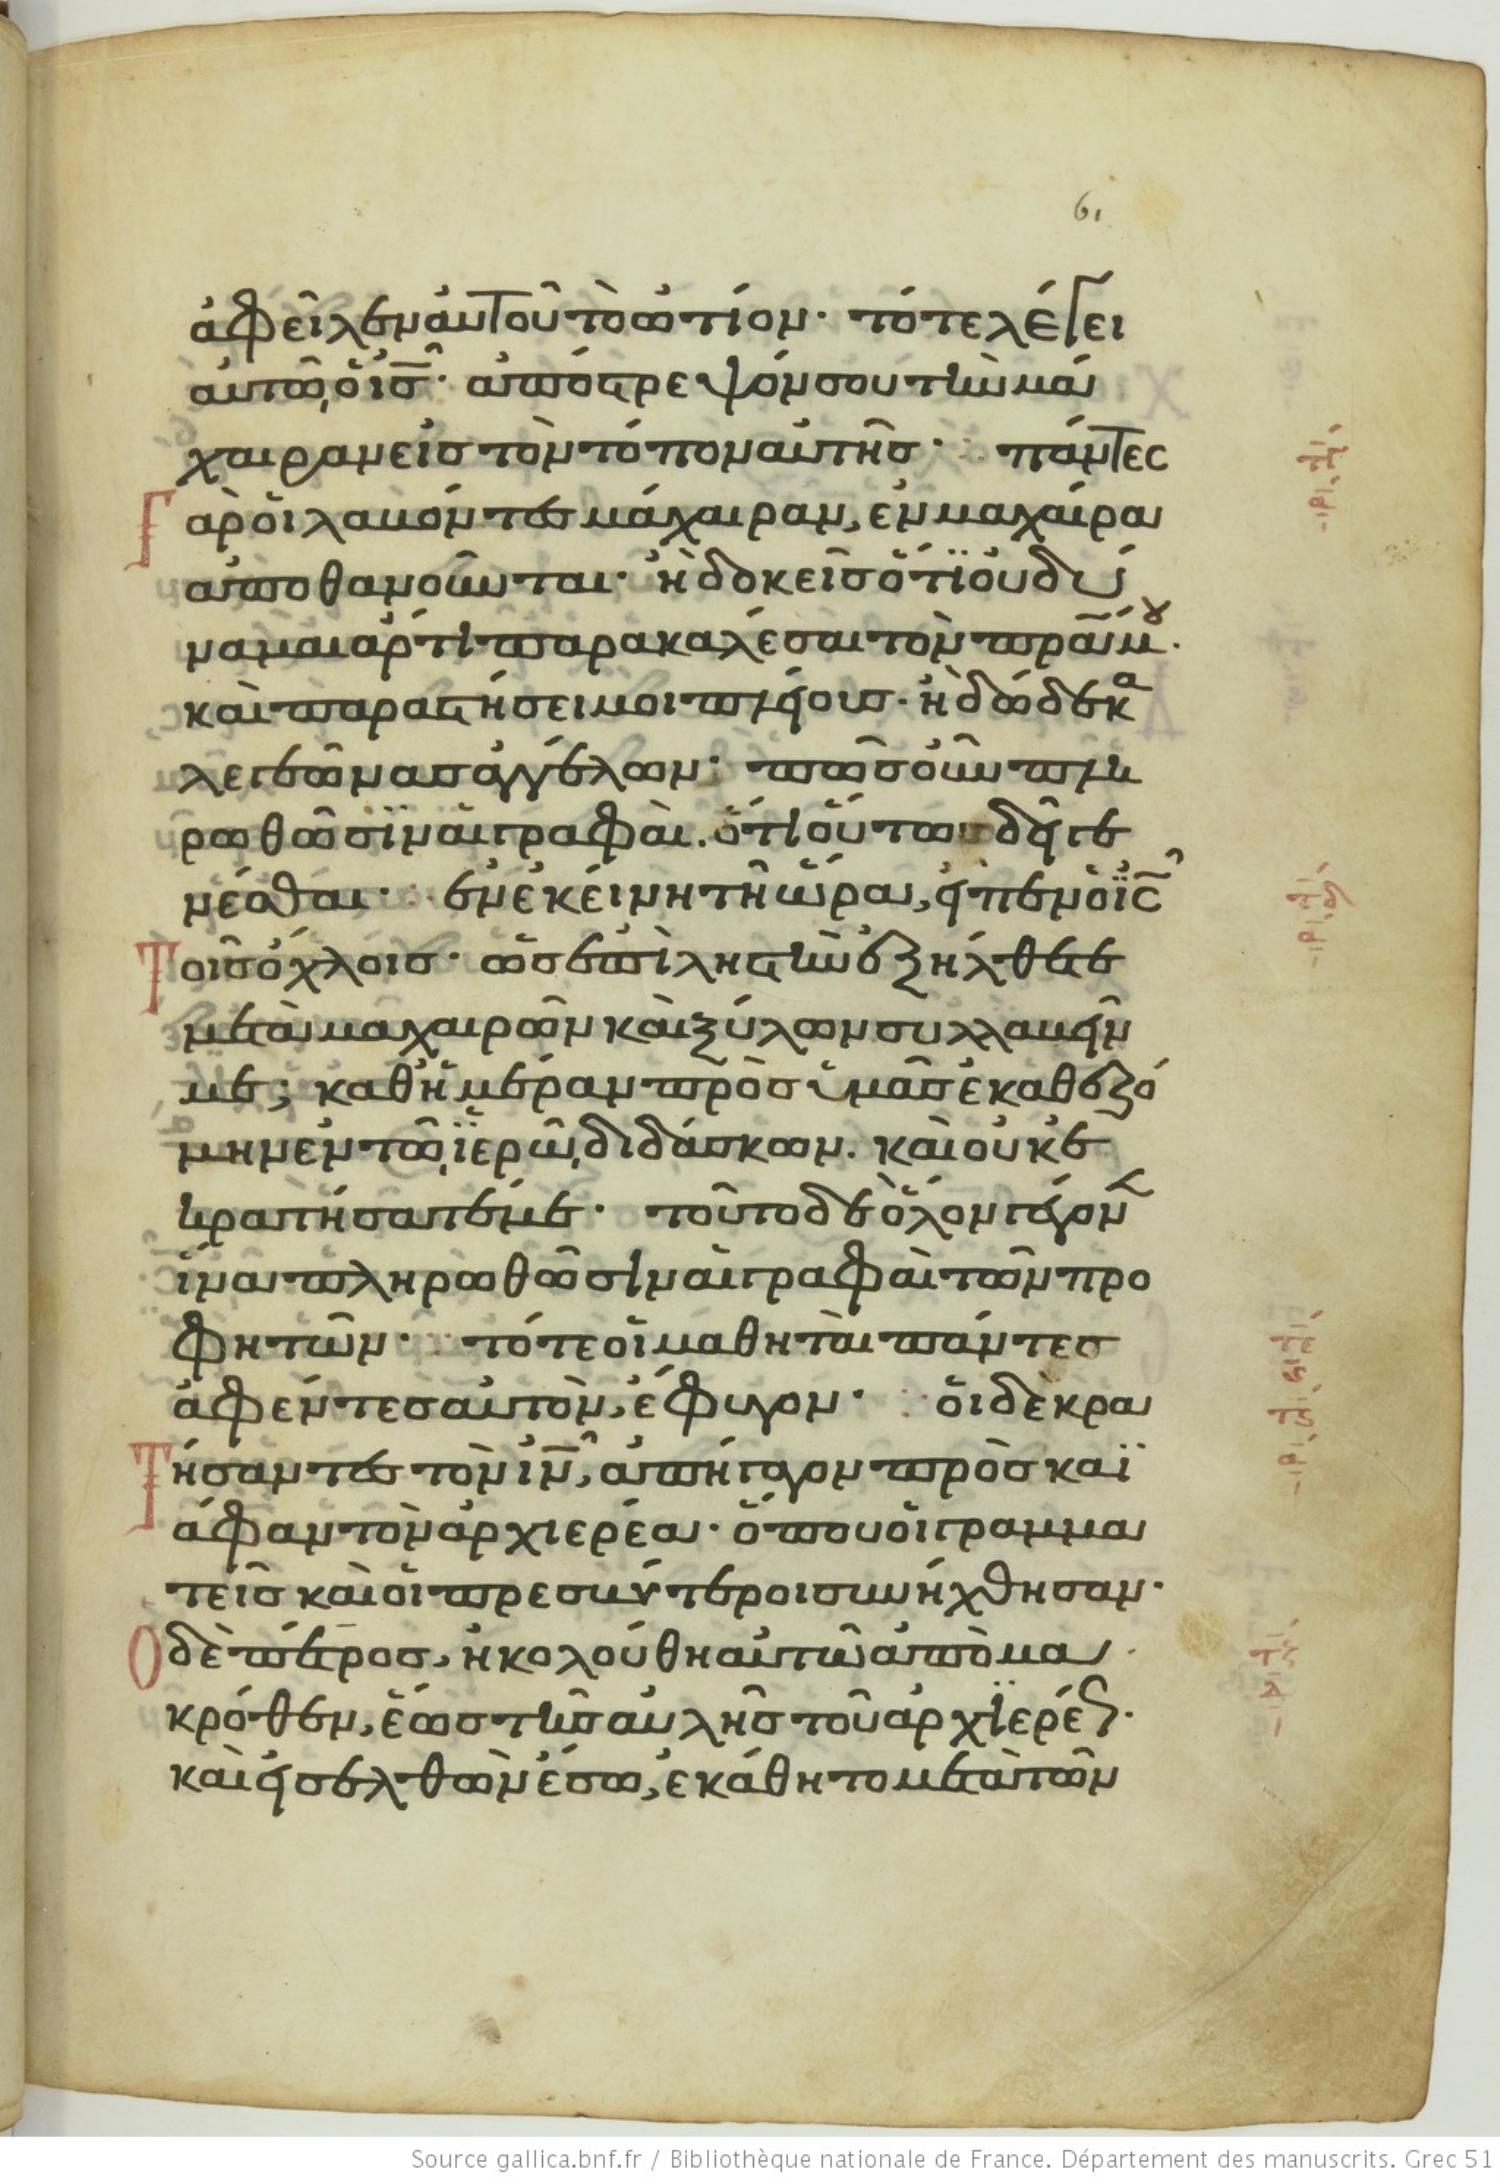 61
ἀφεῖλεν αὐτοῦ τὸ ὠτίον· τότε λέγει
αὐτῶ, ὁ ις· ἀπόστρεψόν σου τὴν μά
χαιραν εἰς τὸν τόπον αὐτῆς· πάντες
γὰρ οἱ λαβόντες μάχαιραν, ἐν μαχαίρα
ἀποθανοῦνται· ἢ δοκεῖς ὅτι οὐ δύ
ναμαι ἄρτι παρακαλέσαι τὸν πρα μου·
καὶ παραστήσει μοι πλείους· ἢ δώδεκα
λεγεῶνας ἀγγέλων· πῶς οὖν πλη
ρωθῶσιν αἱ γραφαὶ. ὅτι οὕτω δεῖ γε
νέσθαι· ἐν ἐκείνη τῆ ὥρα, εἶπεν ὁ ις
τοῖς ὄχλοις· ὡς ἐπὶ ληστὴν ἐξήλθετε
μετὰ μαχαιρῶν καὶ ξύλων συλλαβεῖν
με; καθ' ἡμέραν πρὸς ὑμᾶς ἐκαθεζό
μην ἐν τῶ, ἱερῶ, διδάσκων. καὶ οὐκ ἐ
κρατήσατέ με· τοῦτο δὲ ὅλον γέγονεν
ἵνα πληρωθῶσιν αἱ γραφαὶ τῶν προ
φητῶν· τότε οἱ μαθηταὶ πάντες
ἀφέντες αὐτὸν, ἔφυγον· οἱ δὲ κρα
τήσαντες τὸν ιν, ἀπήγαγον πρὸς καϊ
άφαν τὸν ἀρχιερέα· ὅπου οἱ γραμμα
τεῖς καὶ οἱ πρεσβύτεροι συνήχθησαν·
Ο δὲ πέτρος, ἠκολούθη αὐτῶ ἀπὸ μα
κρόθεν, ἕως τῆς αὐλῆς τοῦ ἀρχιερέως·
καὶ εἰσελθὼν ἔσω, ἐκάθητο μετὰ τῶν
Source gallica.bnf.fr / Bibliothèque nationale de France. Département des manuscrits. Grec 51